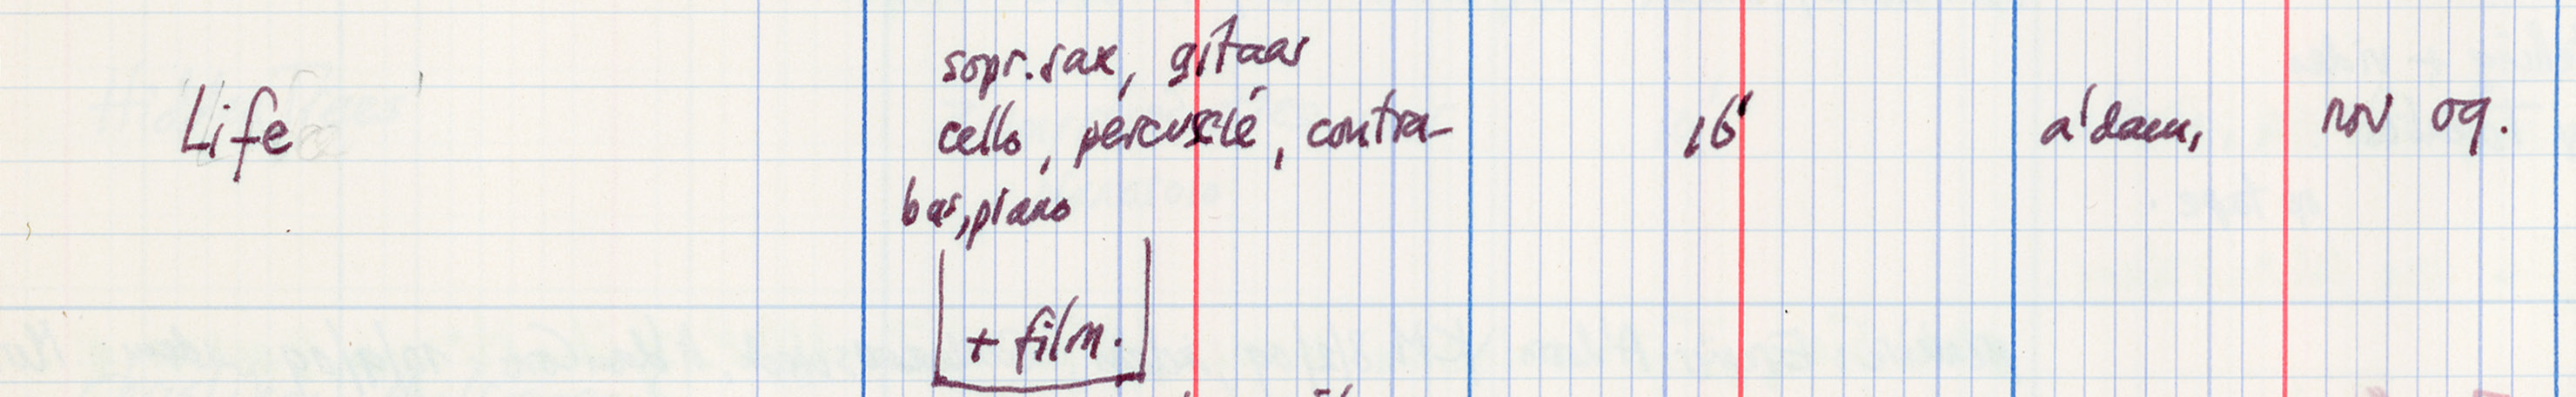 sopr. sax, gitaar
Life cello, percussie, contra- 16' a'dam, nov 09.
bas, piano
+ film.